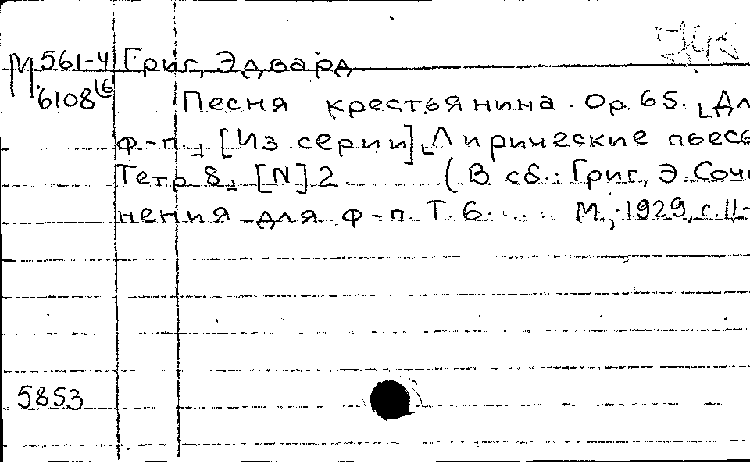 М 561-4 Григ, Эдвард
6108
Песня крестьянина. Ор. 65. [Дл
ф-п.] [Из серии] [Лирические пьесы
Тетр 8.] [N] 2 (В сб.: Григ, Э. Сочи
нения для ф-п. Т. 6. ... М., 1929, с. 11-
5853